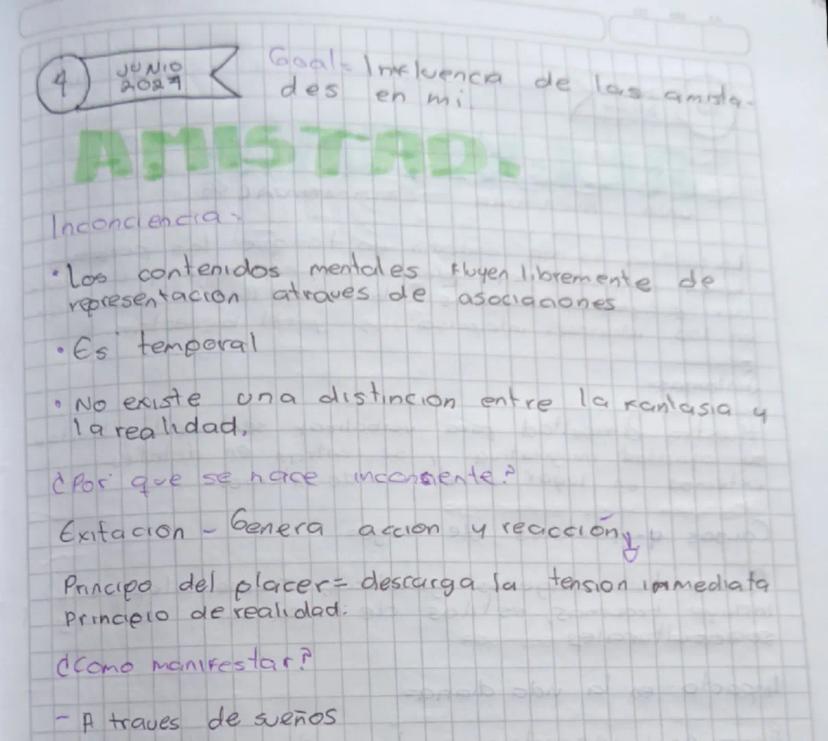 4 JUNIO
2024
Goal= Influencia de las amista-
des en mi
AMISTAD.
Inconciencia.
• Los contenidos mentales fluyen libremente de
representacion atraves de asociaciones
• Es temporal
• No existe una distincion entre la fantasia y
la realidad.
¿Por que se hace inconsiente?
Exitacion - Genera accion y reacción
Principo del placer= descarga la tension inmediata
Principio de realidad.
¿Como manifestar?
- A traves de sueños